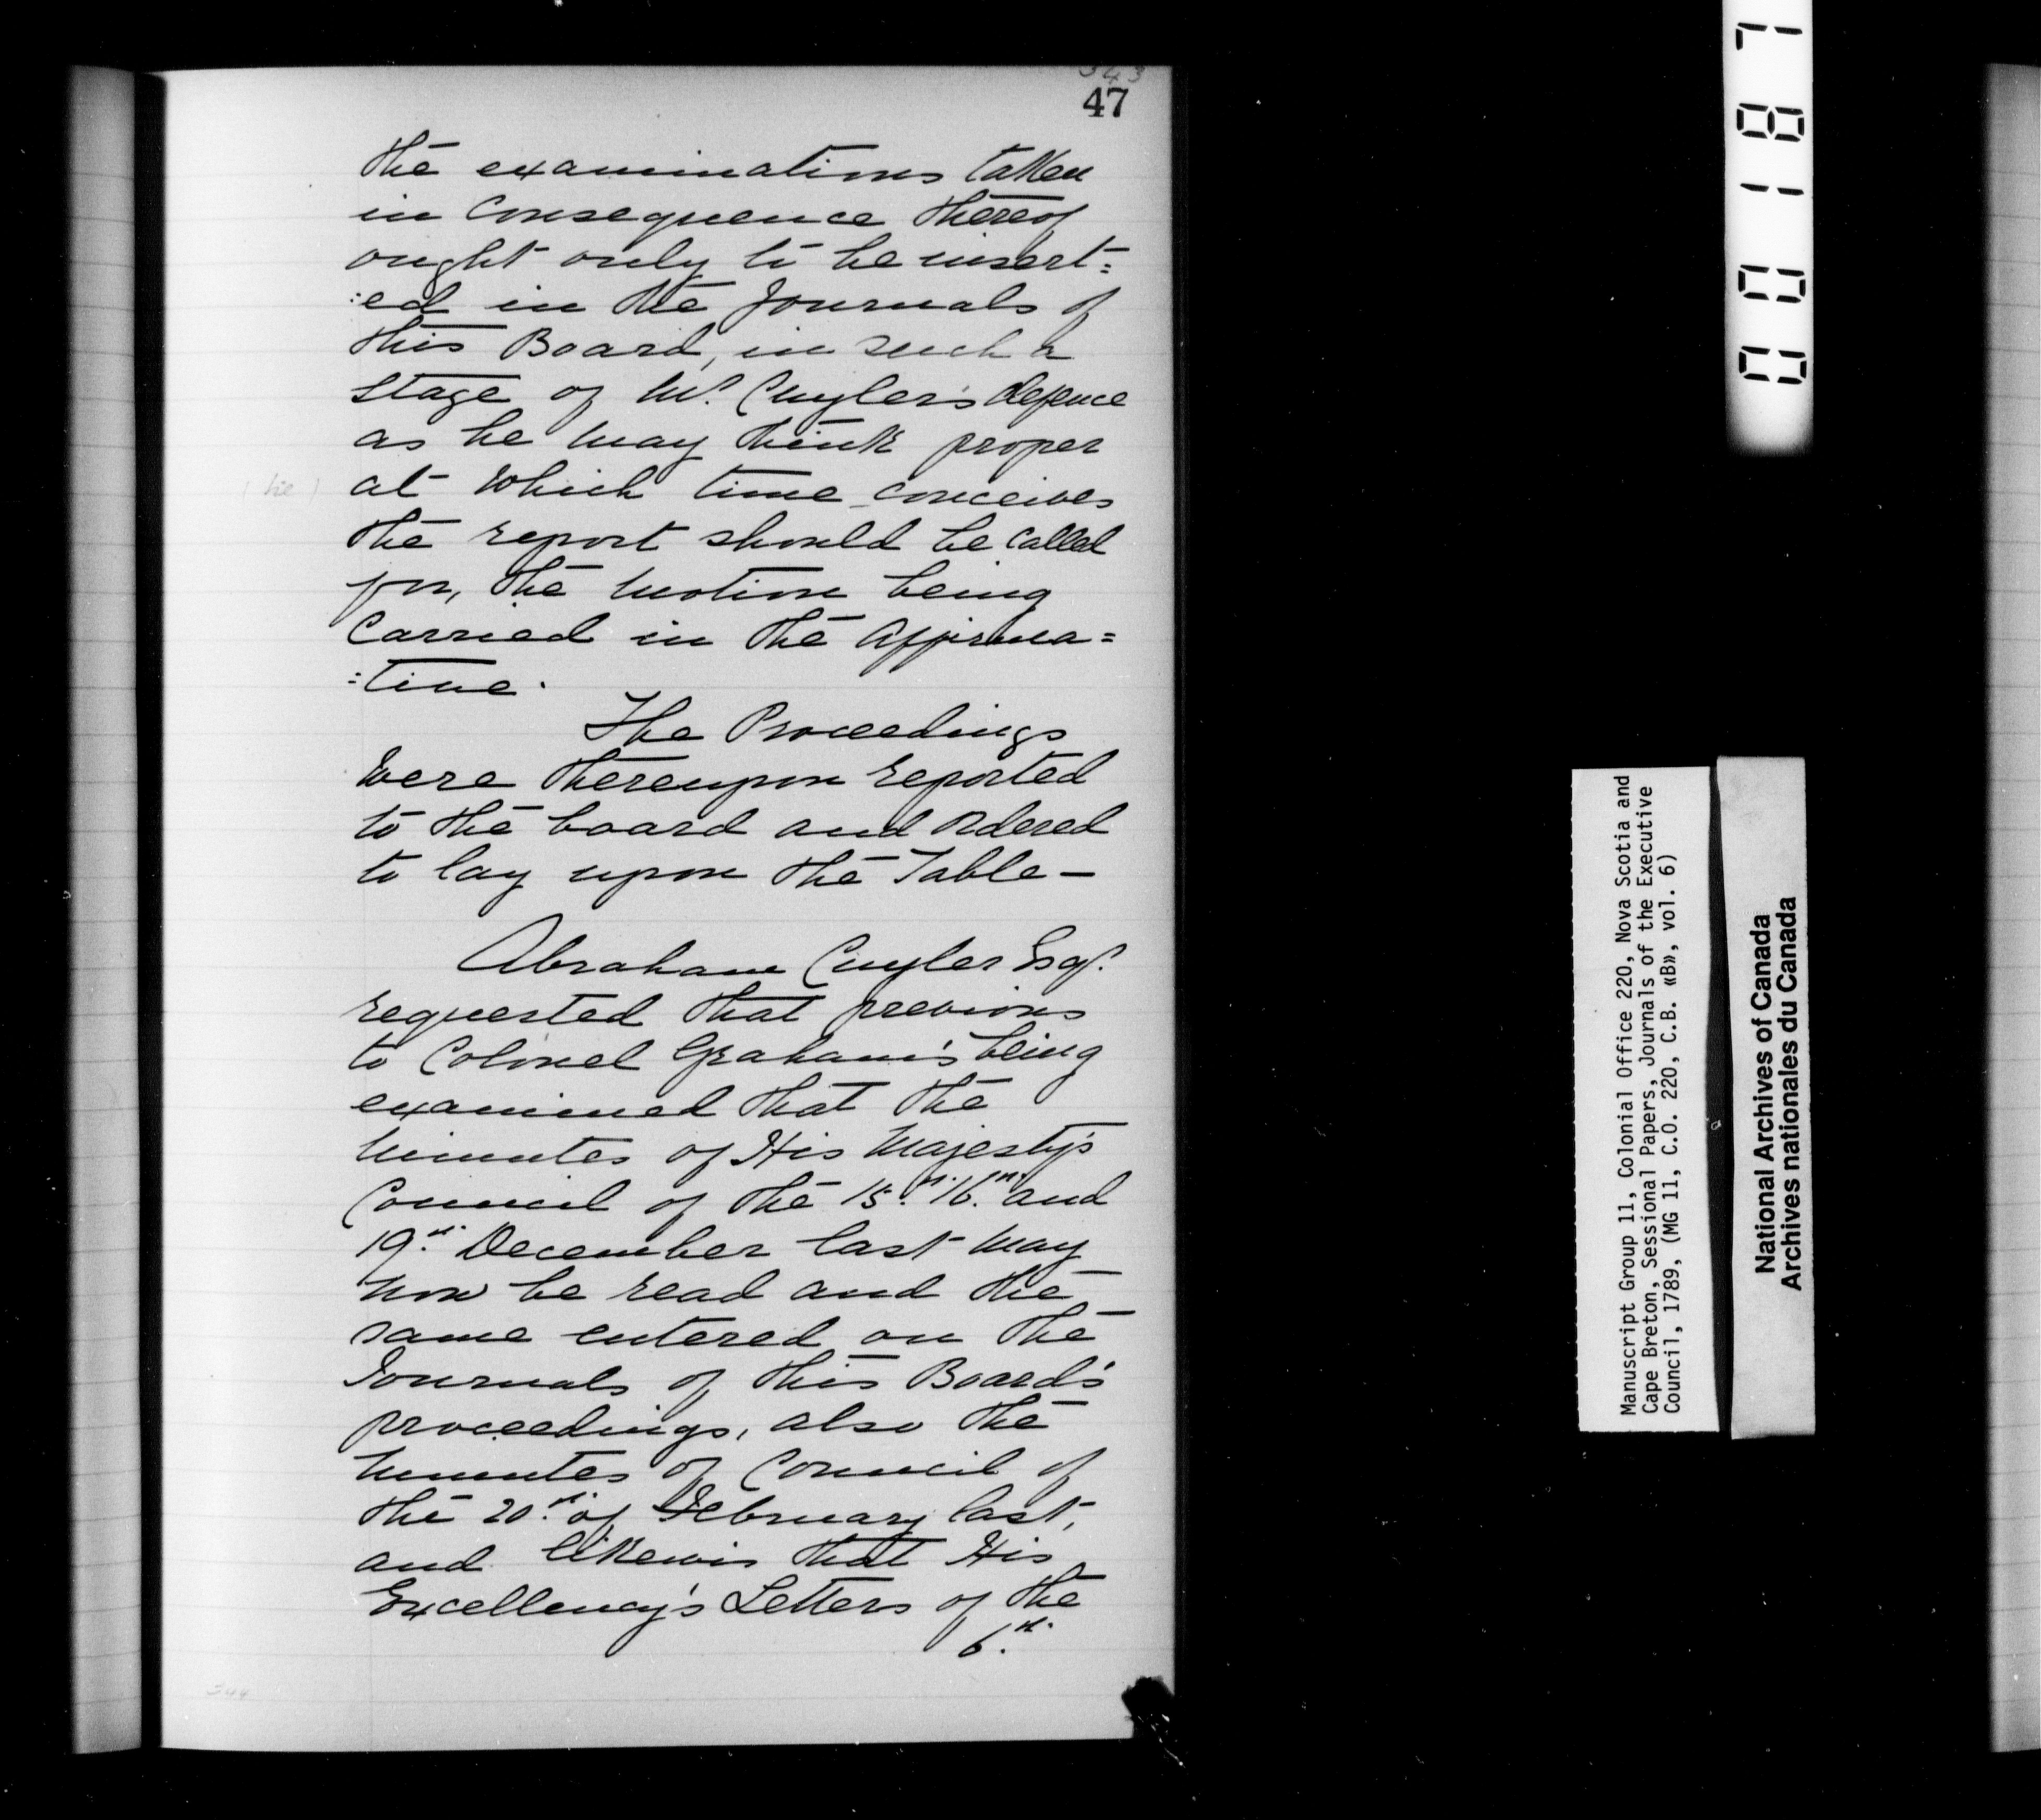 343
47
the examinations taken
in Consequence thereof
ought only to be insert=
:ed in the Journals of
this Board, in such a
stage of Mr. Cuyler's defence
as he may think proper
(he) at which time conceives
the report should be called
for, the motion being
Carried in the Affirma=
:tive.
The Proceedings
were thereupon reported
to the board and ordered
to lay upon the Table —
Abraham Cuyler Esqr.
requested that previous
to Colonel Graham's being
examined that the
Minutes of His Majesty's
Council of the 15.th 16.th and
19.th December last may
now be read and the
same entered on the
Journals of this Board's
proceedings, also the
Minutes of Council of
the 20.th of February last,
and likewis that His
Excellency's Letters of the
6.th
344
00187
Manuscript Group 11, Colonial Office 220, Nova Scotia and
Cape Breton, Sessional Papers, Journals of the Executive
Council, 1789, (MG 11, C.O. 220, C.B. «B», vol. 6)
National Archives of Canada
Archives nationales du Canada